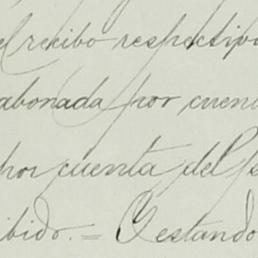 el recibo respectivo
abonada por cuen
por cuenta del
ibido. = Y estando